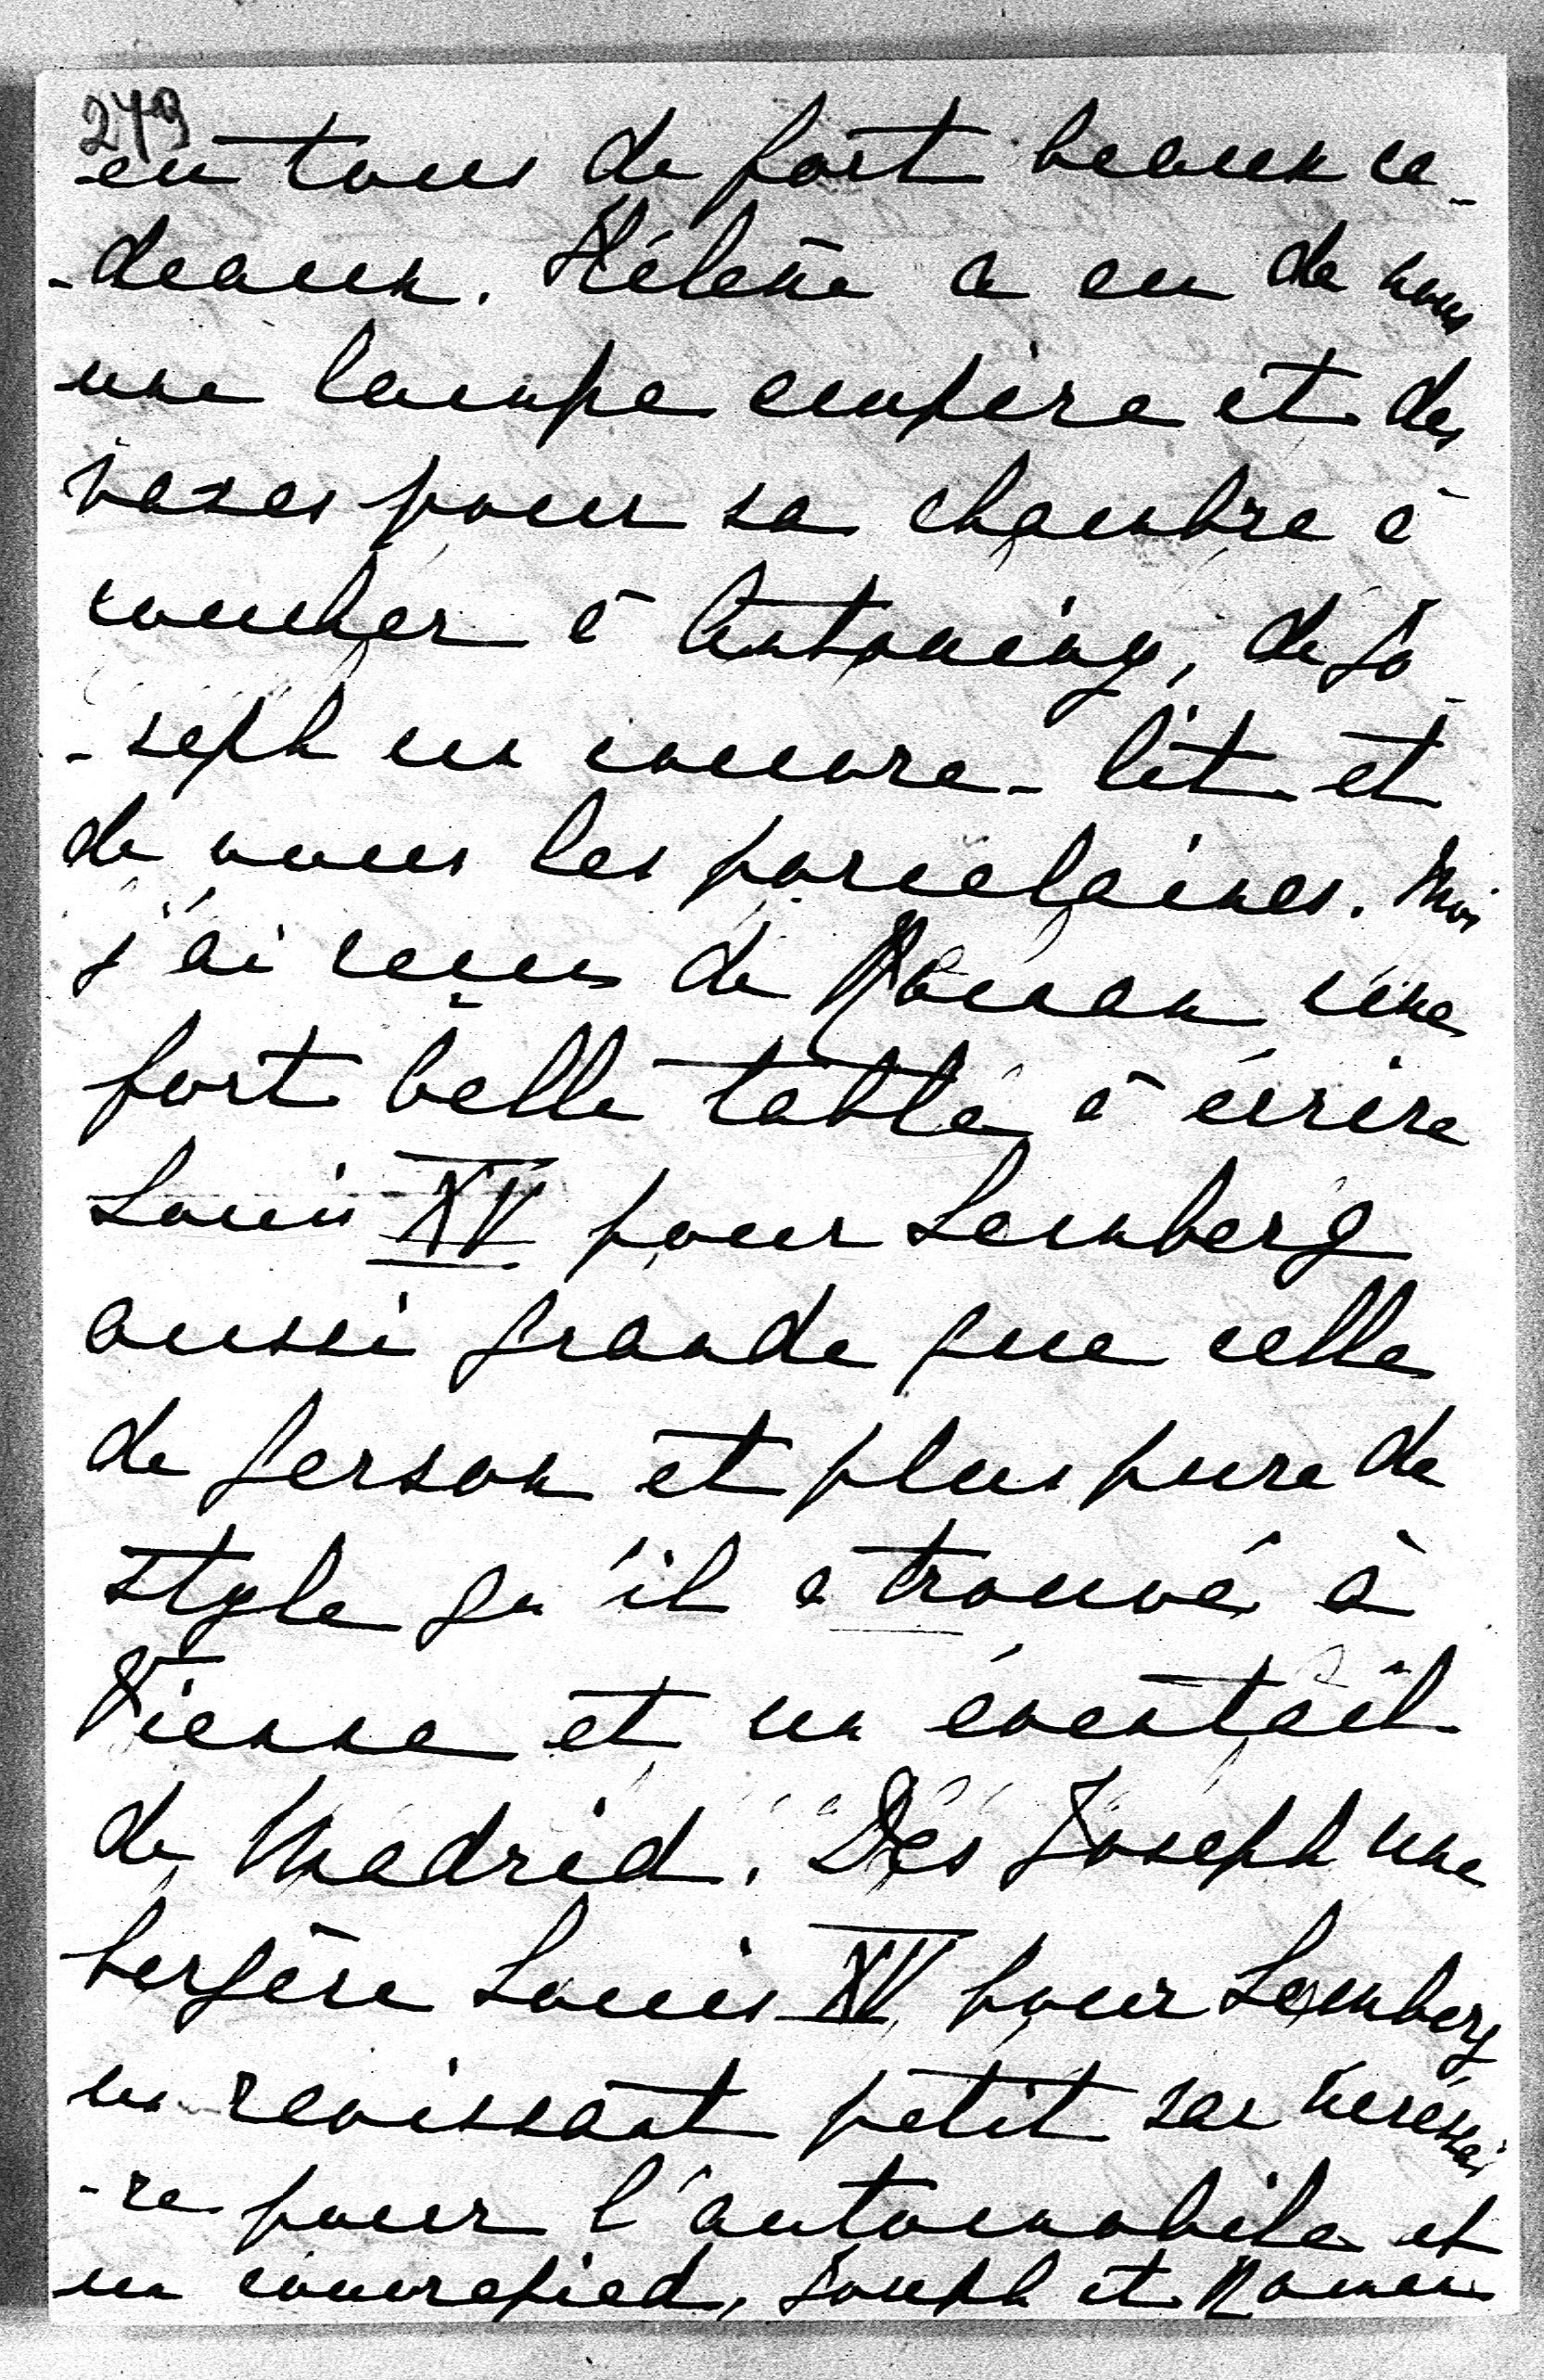 279
eu tous de fort beaux ca-
-deaux. Hélène a eu de nous
une lampe empire et des
vases pour sa chambre à
coucher à Antoniny, de Jo-
-seph un couvre-lit et
de nous les porcelaines. Moi
j'ai reçu de Roman une
fort belle table à écrire
Louis XV pour Lemberg
aussi grande que celle
de Gerson et plus pure de
style qu'il a trouvé à
Vienne et un éventail
de Madrid. Des Joseph une
bergère Louis XV pour Lemberg
un ravissant petit sac nécessai
-re pour l'automobile et
un couvrepied, Joseph et Roman